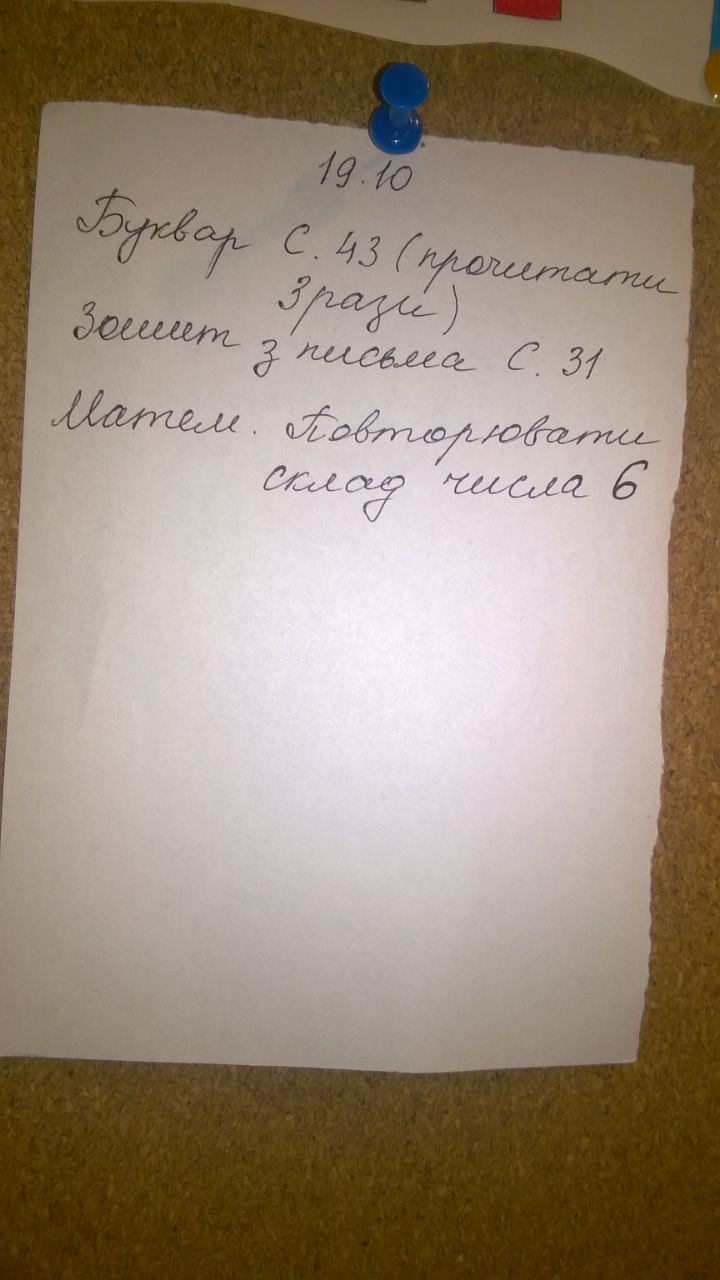 19.10
Буквар С. 43 (прочитати
3 рази)
Зошит з письма С. 31
Матем. Повторювати
склад числа 6